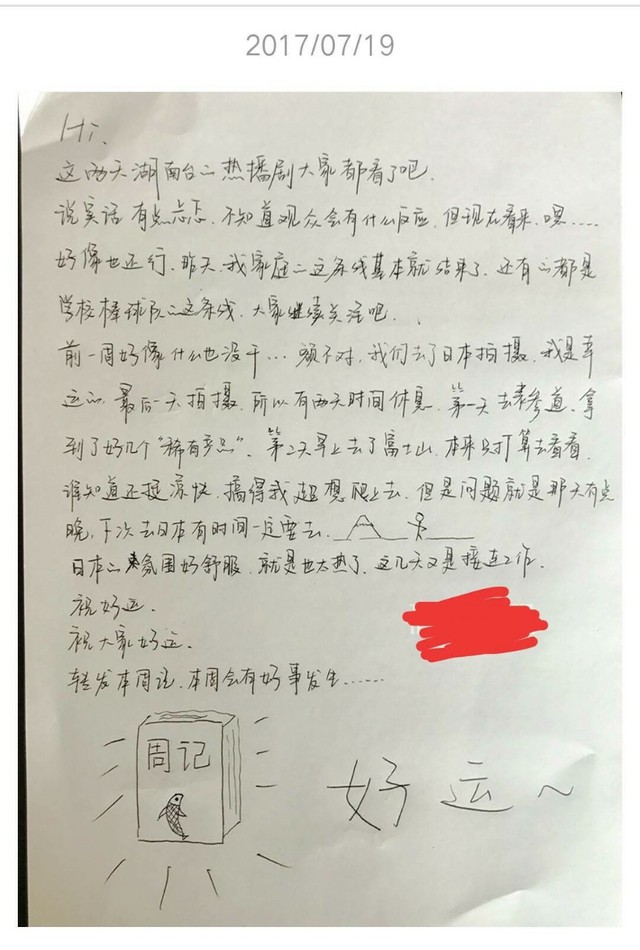 2017/07/19
Hi.
这两天湖南台的热播剧大家都看了吧.
说实话 有点忐忑. 不知道观众会有什么反应. 但现在看来. 嘿……
好像也还行. 昨天. 我家庭的这条线基本就结束了. 还有的都是
学校棒球队的这条线. 大家继续关注吧.
前一周好像什么也没干… 额不对. 我们去了日本拍摄. 我是幸
运的. 最后一天拍摄. 所以有两天时间休息. 第一天去表参道. 拿
到了好几个“稀有产品”. 第2天早上去了富士山. 本来只打算去看看.
谁知道还挺凉快. 搞得我超想爬上去. 但是问题就是那天有点
晚. 下次去日本有时间一定要去.
日本的氛围好舒服. 就是也太热了. 这几天又是接连工作.
祝好运.
祝大家好运.
转发本周记. 本周会有好事发生……
周记
好运~